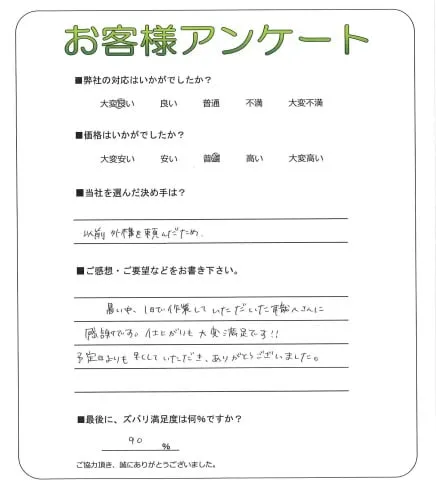 お客様アンケート
■弊社の対応はいかがでしたか?
大変良い 良い 普通 不満 大変不満
■価格はいかがでしたか?
大変安い 安い 普通 高い 大変高い
■当社を選んだ決め手は?
以前外構を頼んだため.
■ご感想・ご要望などをお書き下さい。
暑い中、1日で作業していただいた職人さんに
感謝です。仕上がりも大変満足です!!
予定日よりも早くしていただき、ありがとうございました。
■最後に、ズバリ満足度は何%ですか?
90 %
ご協力頂き、誠にありがとうございました。